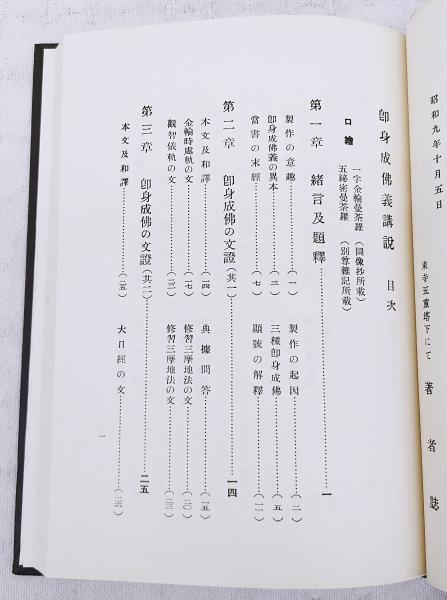 昭和九年十月五日
東寺五重塔下にて 著者誌
卽身成佛義講說 目次
口繪
一字金輪曼荼羅 (圖像抄所載)
五秘密曼荼羅 (別尊雜記所載)
第一章 緖言及題釋……一
製作の意趣……(一) 製作の起因……(二)
卽身成佛義の異本……(三) 三種卽身成佛……(五)
當書の末經……(七) 題號の解釋……(一一)
第二章 卽身成佛の文證(其一)……一四
本文及和譯……(一四) 典據問答……(一五)
金輪時處軌の文……(一七) 修習三摩地法の文……(二〇)
觀智儀軌の文……(二二) 修習三摩地法の文……(二三)
第三章 卽身成佛の文證(其二)……二五
本文及和譯……(二五) 大日經の文……(二六)
一